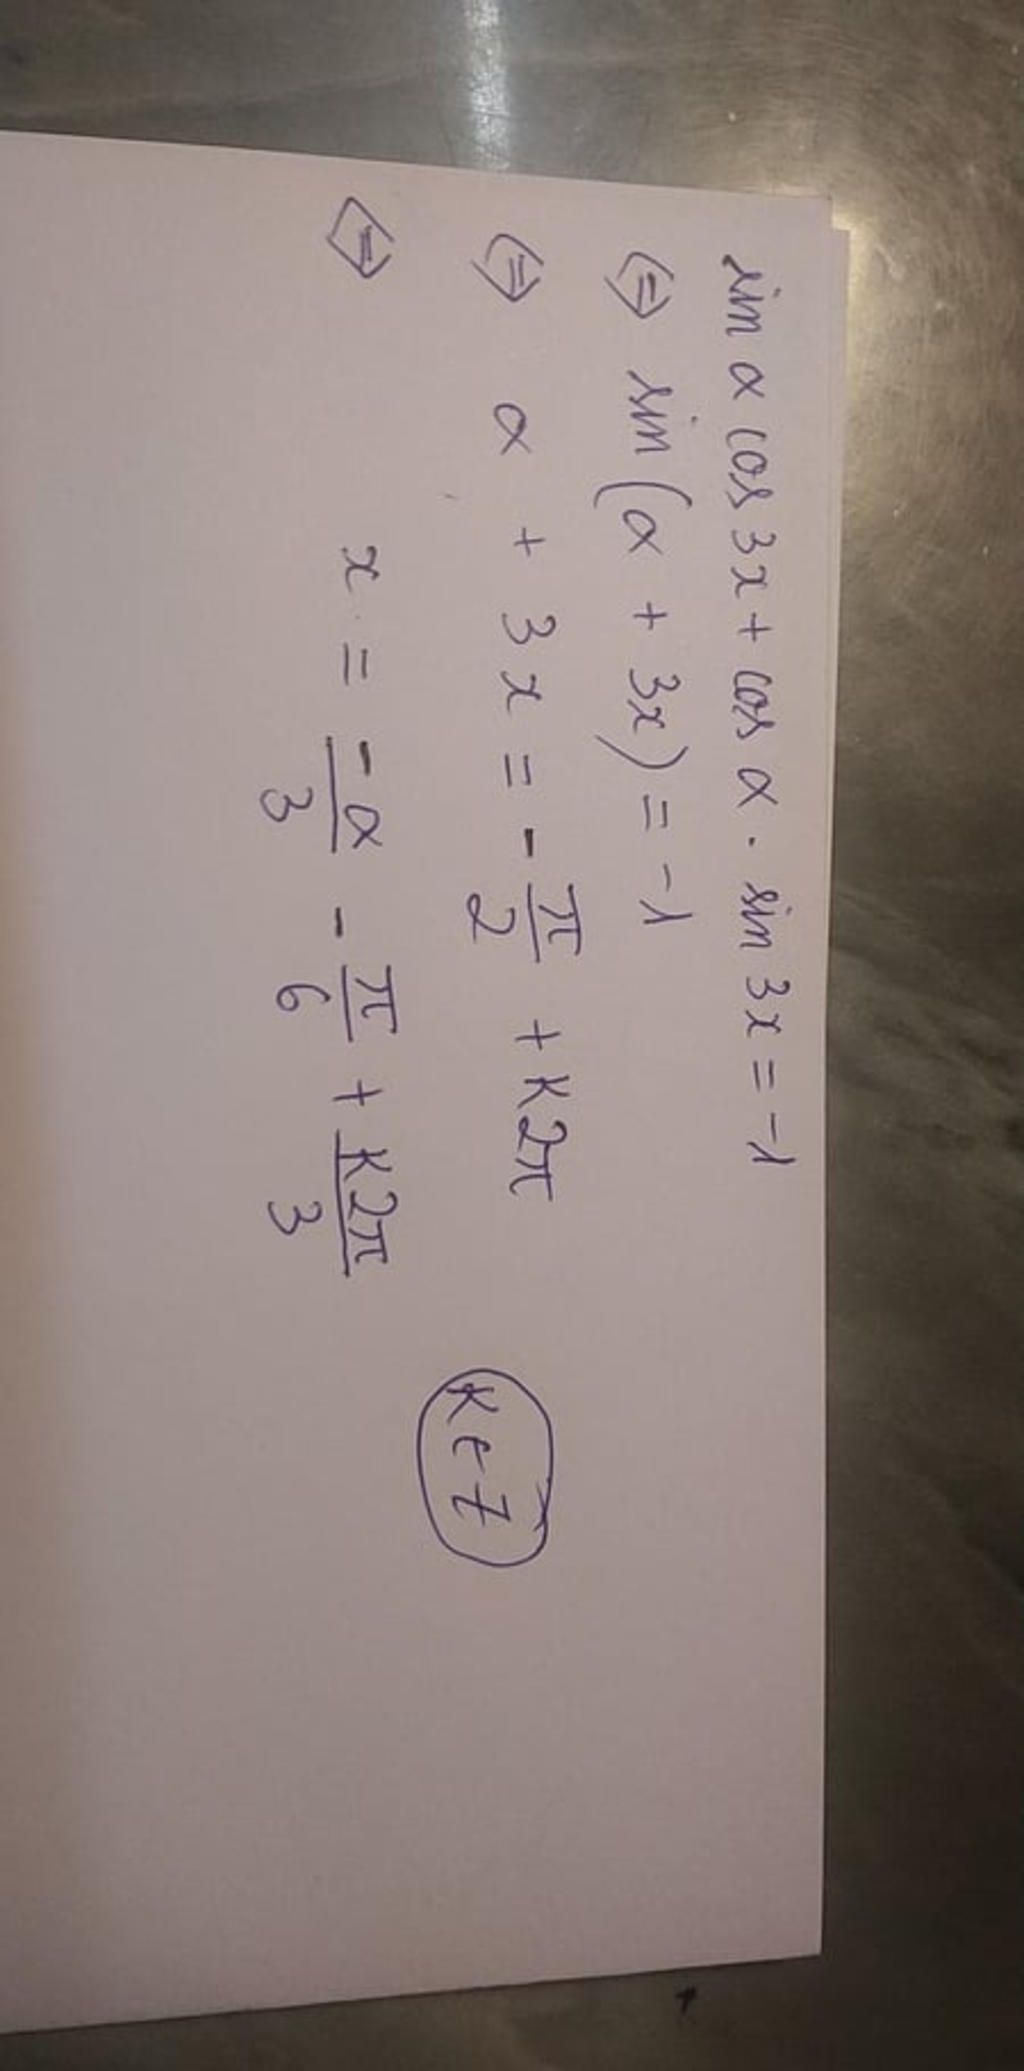 sin α cos 3x + cos α . sin 3x = -1
⇔ sin (α + 3x) = -1
⇔ α + 3x = - π/2 + k2π
k ∈ Z
⇔ x = -α/3 - π/6 + k2π/3